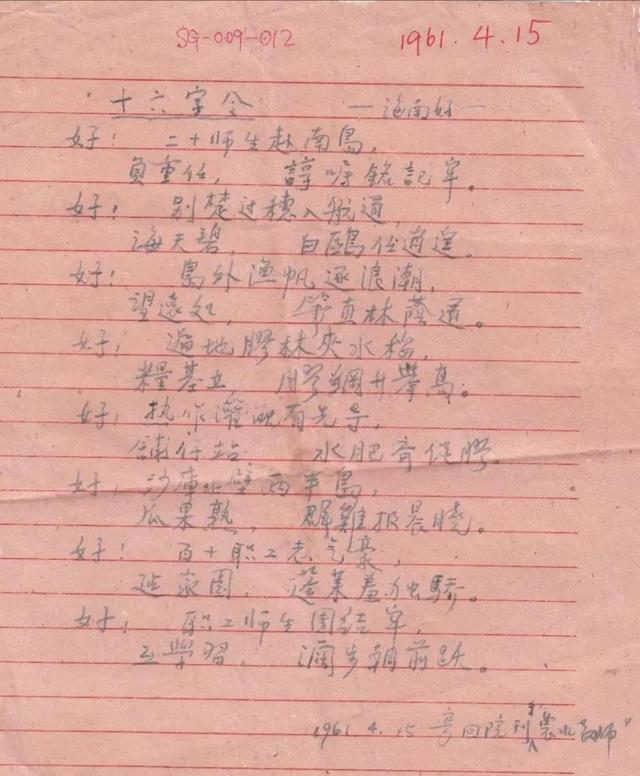 SG-009-012
1961.4.15
十六字令 —海南好—
好！ 二十师生赴南島，
負重任， 諄嘱銘記牢。
好！ 别楚过穗入航道，
海天碧， 白鷗任逍遥。
好！ 島外漁帆逐浪潮，
望遠如， 筆直林蔭道。
好！ 遍地膠林夾水稻，
糧基立 鋼升攀高。
好！ 热作灌溉有先导，
試仔站 水肥育促膠。
好！ 沙庫北壁两半島，
瓜果熟， 群雞报晨晓。
好！ 百十职工志气豪，
建家園， 蓬莱羞为驕。
好！ 职工师生團结牢，
互學習， 濶步朝前跃。
1961.4.15 寄回院刊 農水教师"